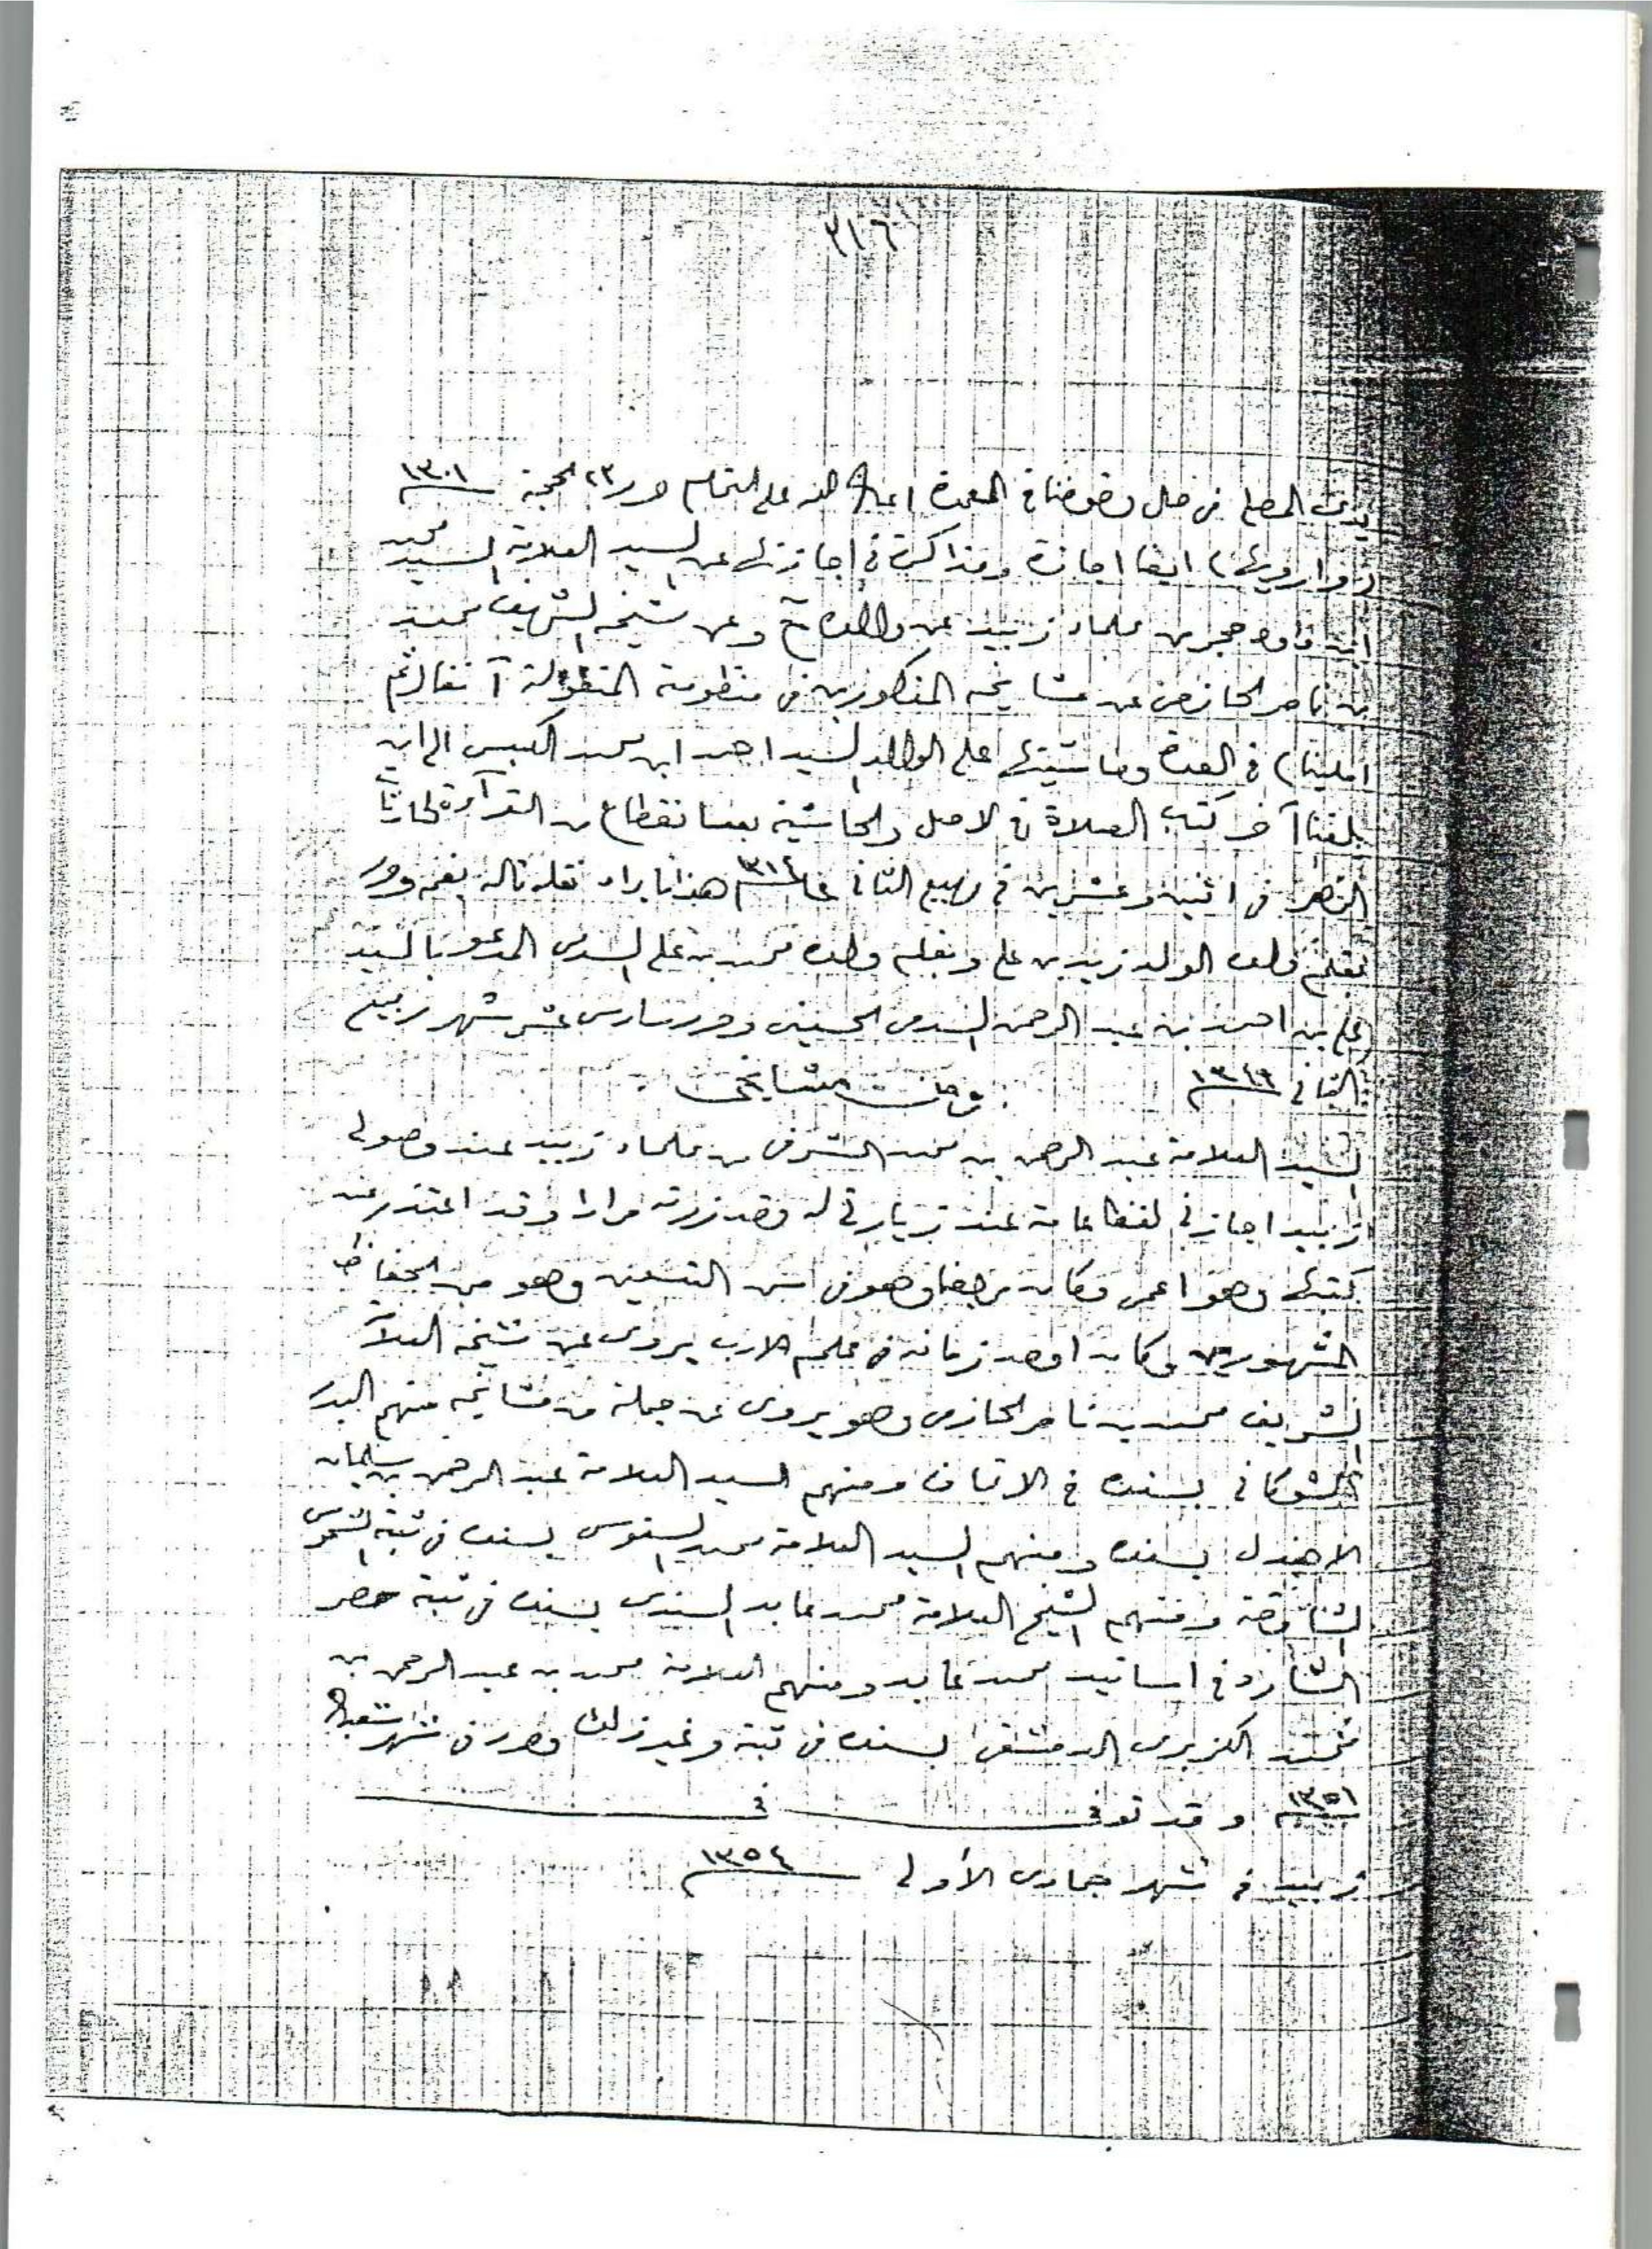 ٣١٦
المصلي في حال خوضنا في العمدة اعان الله على التمام حرر ٢٣ الحجة ١٣٠١
ايضا اجازة ومذاكرة في اجازته عن السيد العلامة السيد محمد
ابن داود حجر من علماء زبيد عن والده ح وعن شيخه الشريف محمد
بن ناصر الحازمي عن مشايخه المذكورين في منظومته المنقولة آنفا ثم
املينا في العدة وحاشيتها على الوالد السيد احمد ابن محمد الكبسي الى ان
بلغنا آخر كتاب الصلاة في الاصل والحاشية بعد انقطاع من القرآءة
في اثنين وعشرين في ربيع الثاني عام ١٣١٤ هذا ما يراد نقله قاله بفمه وحرر
بقلم ولده الولد زيد بن علي وبقلم ولده محمد بن علي السدمي المدعو بالسيد
علي بن احمد بن عبد الرحمن السدمي الحسيني وحرر سادس عشر شهر ربيع
الثاني
ومن مشايخي
السيد العلامة عبد الرحمن بن محمد الشرفي من علماء زبيد عند وصولي
زبيد اجازني لفظا عامة عند زيارتي له وقد زرته مرارا وقد اعتذر عن
كتبها وهو اعمى وكان مريضا وهو في سن التسعين وهو من الحفاظ
المشهورين وكان اوحد زمانه في علم الادب يروي عن شيخه العلامة
الشريف محمد بن ناصر الحازمي وهو يروي عن جملة من مشايخه منهم البدر
الشوكاني بسنده في الاتحاف ومنهم السيد العلامة عبد الرحمن بن سليمان
الاهدل بسنده ومنهم السيد العلامة محمد السنوسي بسنده في ثبته الشموس
الشارقة ومنهم الشيخ العلامة محمد عابد السندي بسنده في ثبته حصر
الشارد في اسانيد محمد عابد ومنهم العلامة محمد بن عبد الرحمن بن
محمد الكزبري الدمشقي بسنده في ثبته وغير ذلك وحرر في شهر شعبان
١٣٥١ وقد توفي في
زبيد في شهر جمادى الأولى ١٣٥٤